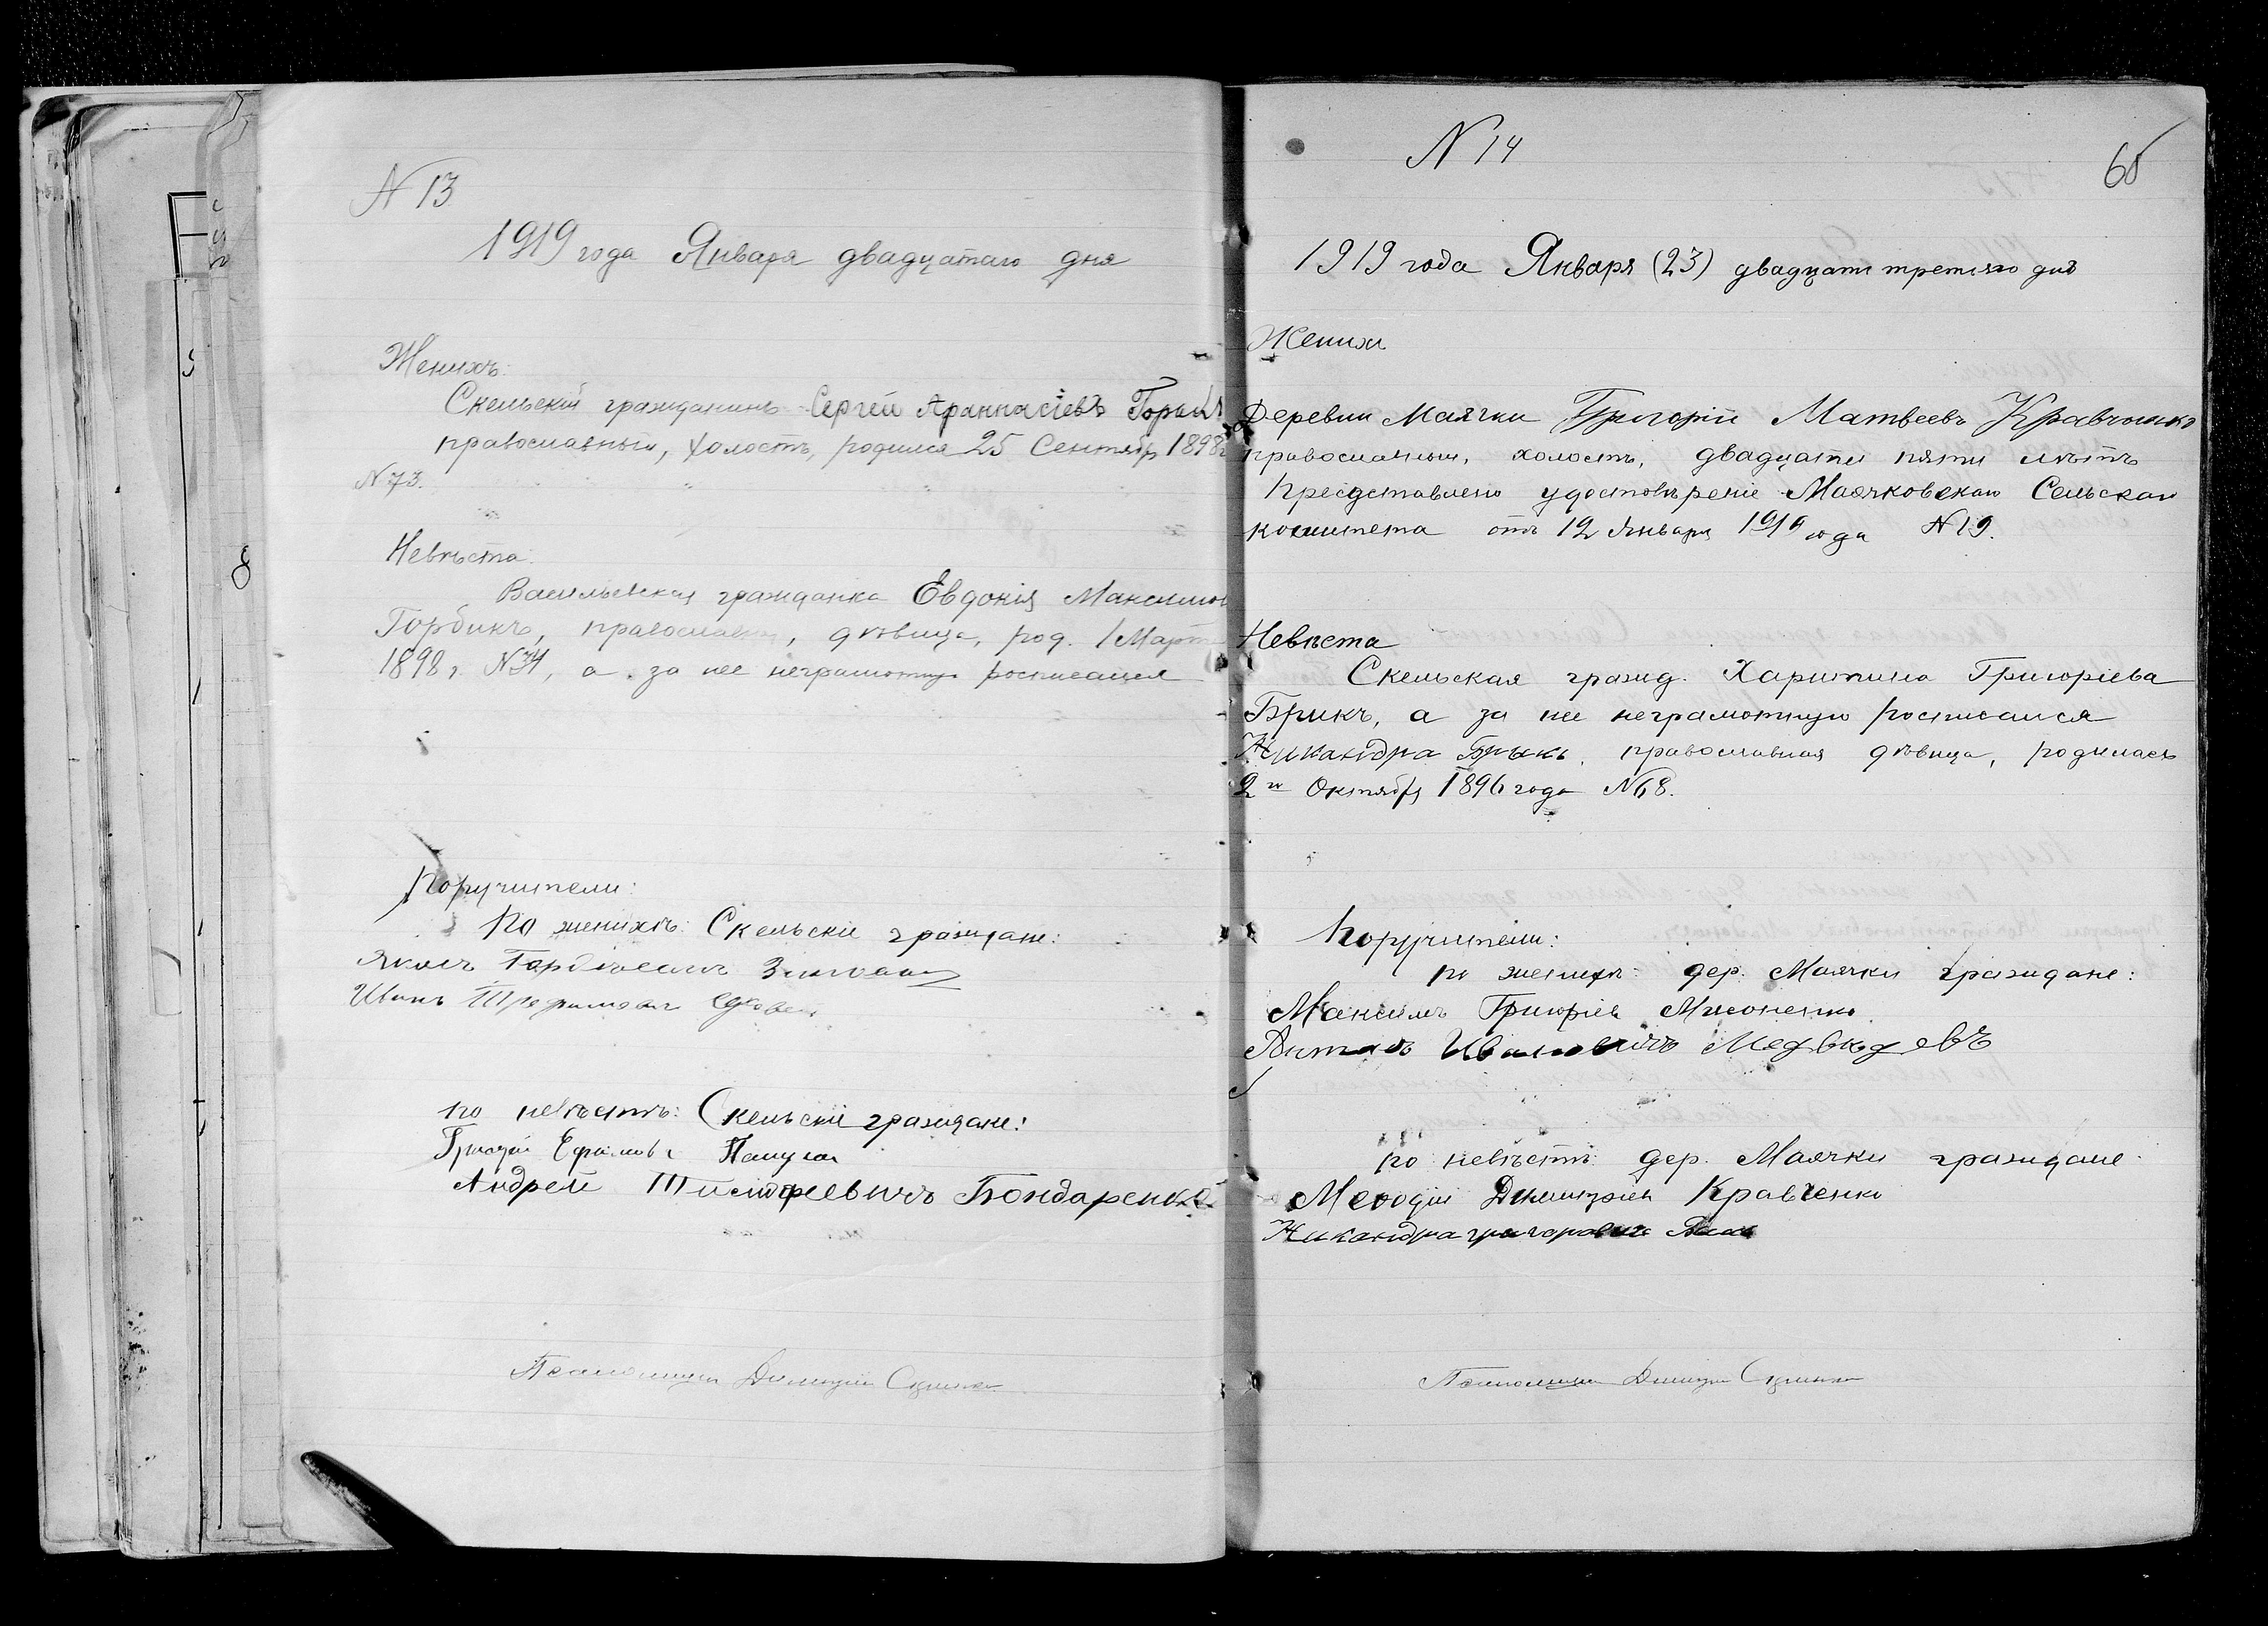 N 13
1919 года Января двадцатаго дня
Женихъ:
Скельскій гражданинъ Сергей Афанасіевъ
православный, холостъ, родился 25 Сентябр 1898
N 73.
Невѣста:
Васильевская гражданка Евдокія Максимов
Горбикъ, православн, дѣвица, род. 1 Март
1898 г. N34, а за нее неграмотную росписался
Поручители:
По женихѣ: Скельскіе граждане:
Яковъ
Иванъ
по невѣстѣ: Скельскіе граждане:
Григорій Ефимовъ
Андрей Тимофеевичъ Бондаренко
Димитрій
N 14
65
1919 года Января (23) двадцати третьяго дня
Женихъ
Деревни Маячки Григорій Матвеевъ Кравченко
православный, холостъ, двадцати пяти лѣтъ
Представлено удостовѣреніе Маячковскаго Сельскаго
комитета отъ 12 Января 1919 года N 19.
Невѣста
Скельская гражд. Харитина Григоріева
Брикъ, а за нее неграмотную росписался
Никандра Брыкъ, православная дѣвица, родилась
2го Октября 1896 года N68.
Поручители:
по женихѣ: дер. Маячки граждане:
Максимъ Григоріев
Антонъ Ивановичъ Медвѣдевъ
по невѣстѣ дер. Маячки граждане
Меѳодій Димитріев Кравченко
Никандра
Димитрій